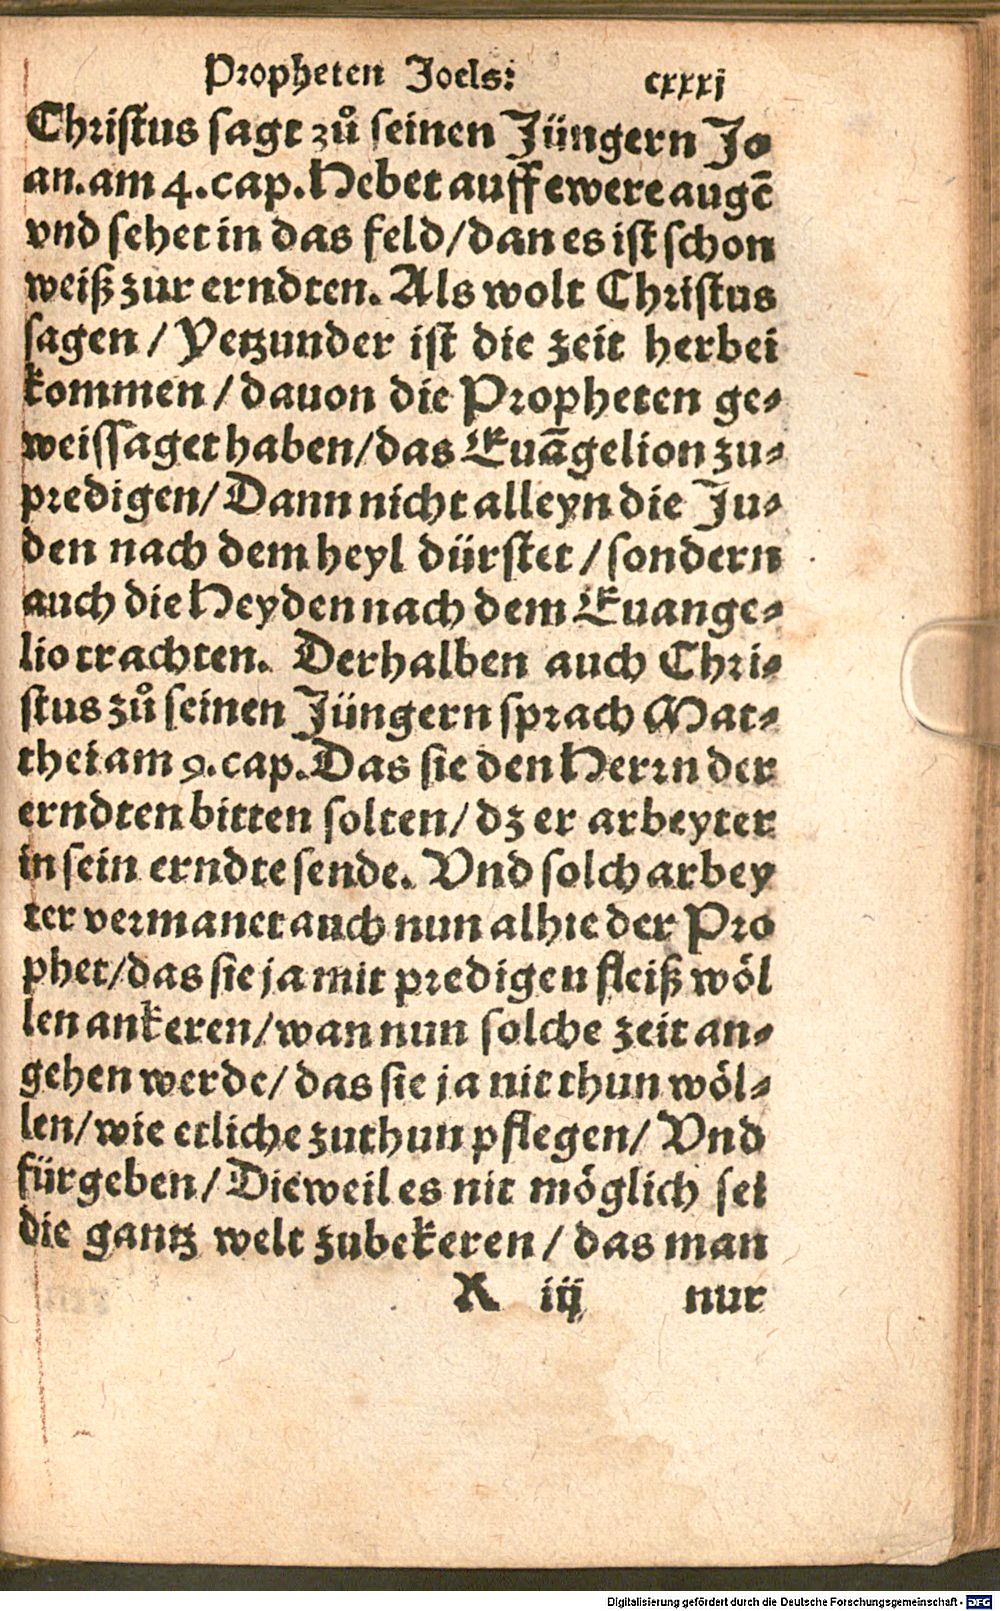 Propheten Joels: cxxxj
Christus sagt zů seinen Jüngern Jo
an. am 4. cap. Hebet auff ewere augē
vnd sehet in das feld/ dan es ist schon
weiß zur erndten. Als wolt Christus
sagen / Yetzunder ist die zeit herbei
kommen / dauon die Propheten ge⸗
weissaget haben/ das Euāgelion zu⸗
predigen/ Dann nicht alleyn die Ju⸗
den nach dem heyl dürstet / sondern
auch die Heyden nach dem Euange⸗
lio trachten. Derhalben auch Chri⸗
stus zů seinen Jüngern sprach Mat⸗
thei am 9. cap. Das sie den Herrn der
erndten bitten solten/ dz er arbeyter
in sein erndte sende. Vnd solch arbey
ter vermanet auch nun alhie der Pro
phet/ das sie ja mit predigen fleiß wöl
len ankeren/ wan nun solche zeit an⸗
gehen werde/ das sie ja nit thun wöl⸗
len/ wie etliche zuthun pflegen/ Vnd
fürgeben / Dieweil es nit möglich sei
die gantz welt zubekeren / das man
R iij nur
Digitalisierung gefördert durch die Deutsche Forschungsgemeinschaft - DFG